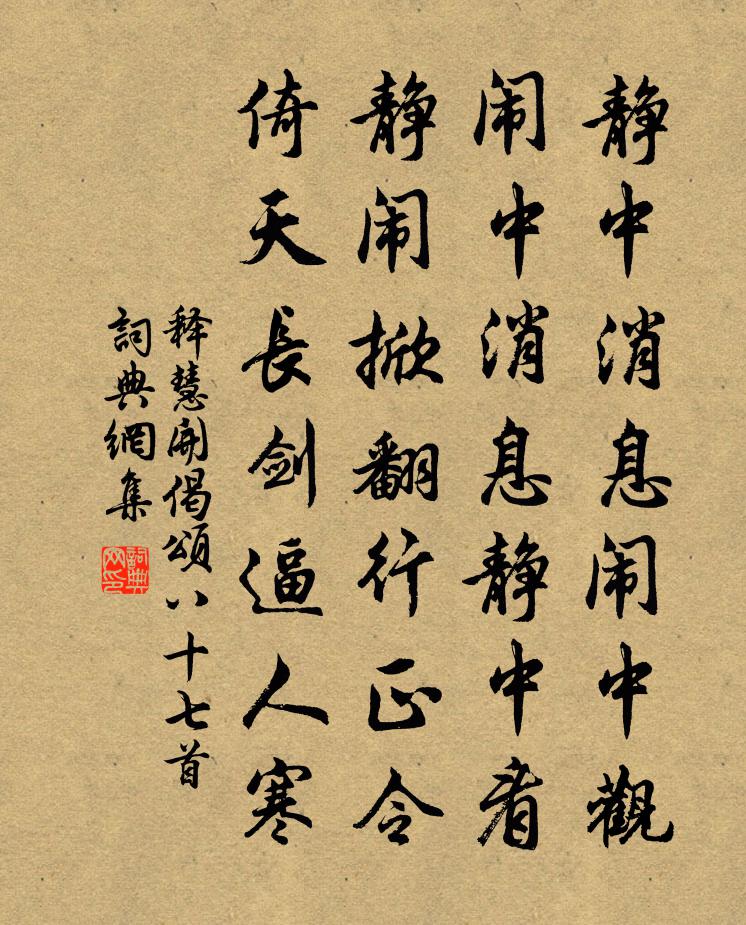 静中消息闹中觀
闹中消息静中看
静闹掀翻行正令
倚天長剑逼人寒
释慧開偈頌八十七首
詞典網集
詞典网印